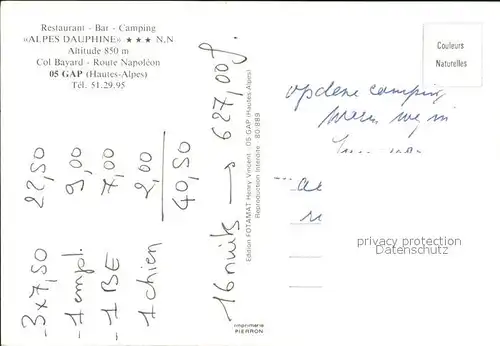 Restaurant - Bar - Camping
«ALPES DAUPHINE» ★★★ N.N.
Altitude 850 m
Col Bayard - Route Napoléon
05 GAP (Hautes-Alpes)
Tél. 51.29.95
Couleurs
Naturelles
- 3 x 7,50 22,50
- 1 empl. 9,00
- 1 BE 7,00
1 chien 2,00
40,50
16 nuits → 627,00
Edition FOTAMAT Henry Vincent 05 GAP (Hautes Alpes)
Reproduction Interdite 80-889
Imprimerie
PIERRON
op deze camping
waren wij in
privacy protection
Datenschutz